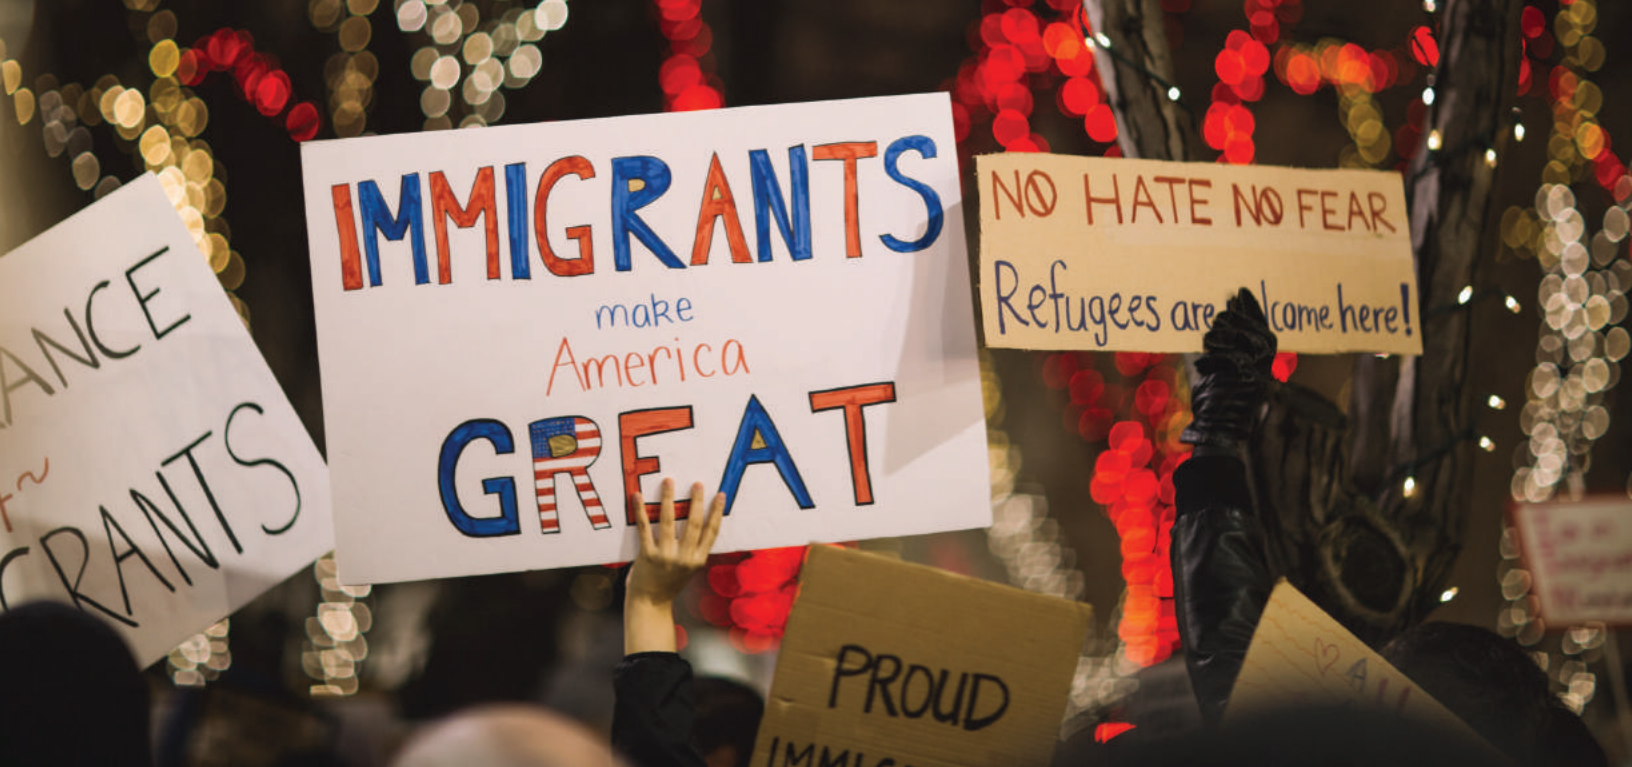 ANCE
RANTS
IMMIGRANTS
make
America
GREAT
NO HATE NO FEAR
Refugees are here!
PROUD
A